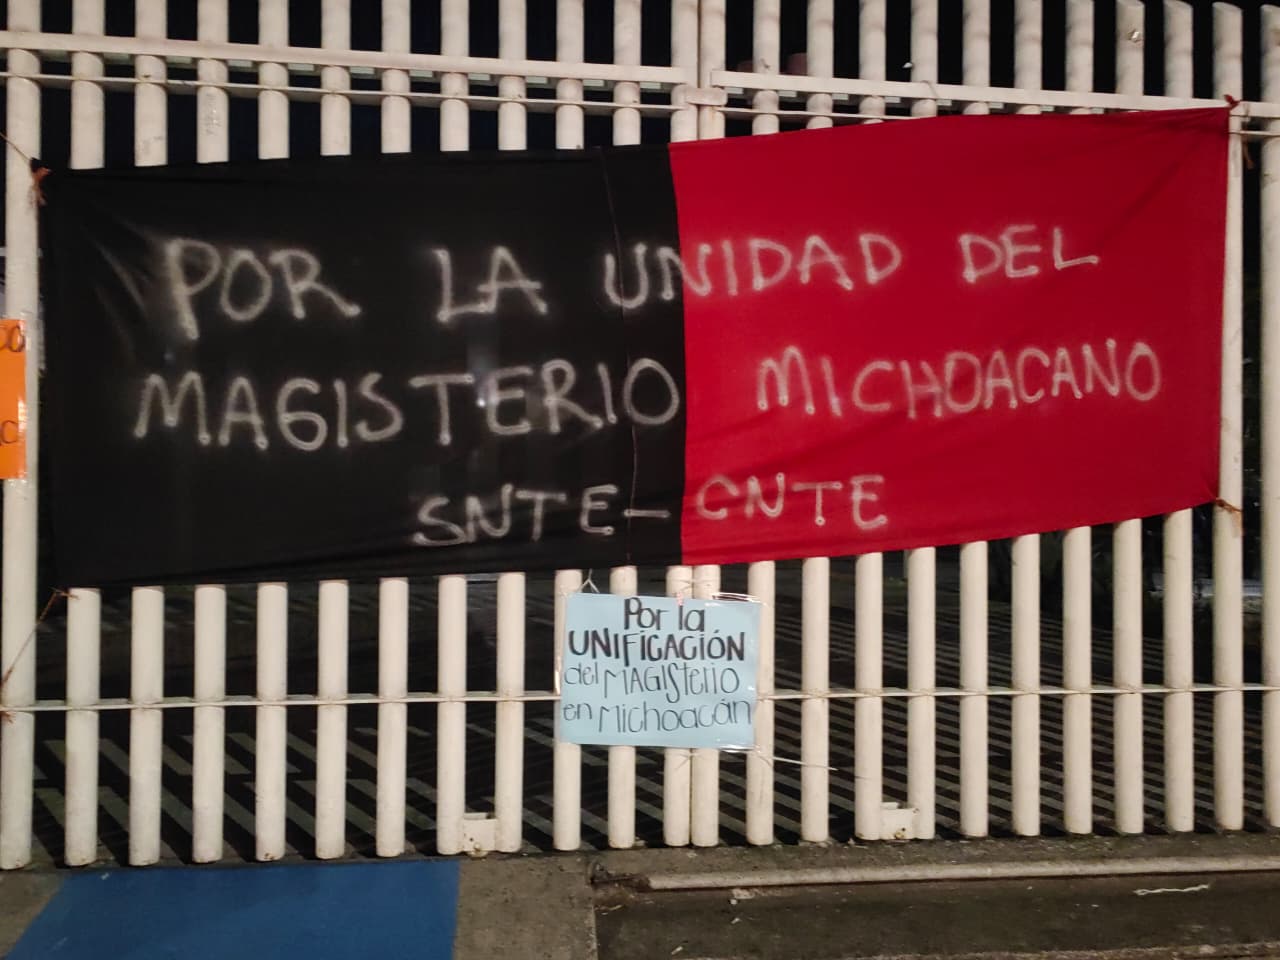 POR LA UNIDAD DEL
MAGISTERIO MICHOACANO
SNTE-CNTE
Por la
UNIFICACIÓN
del MAGISterio
en Michoacán